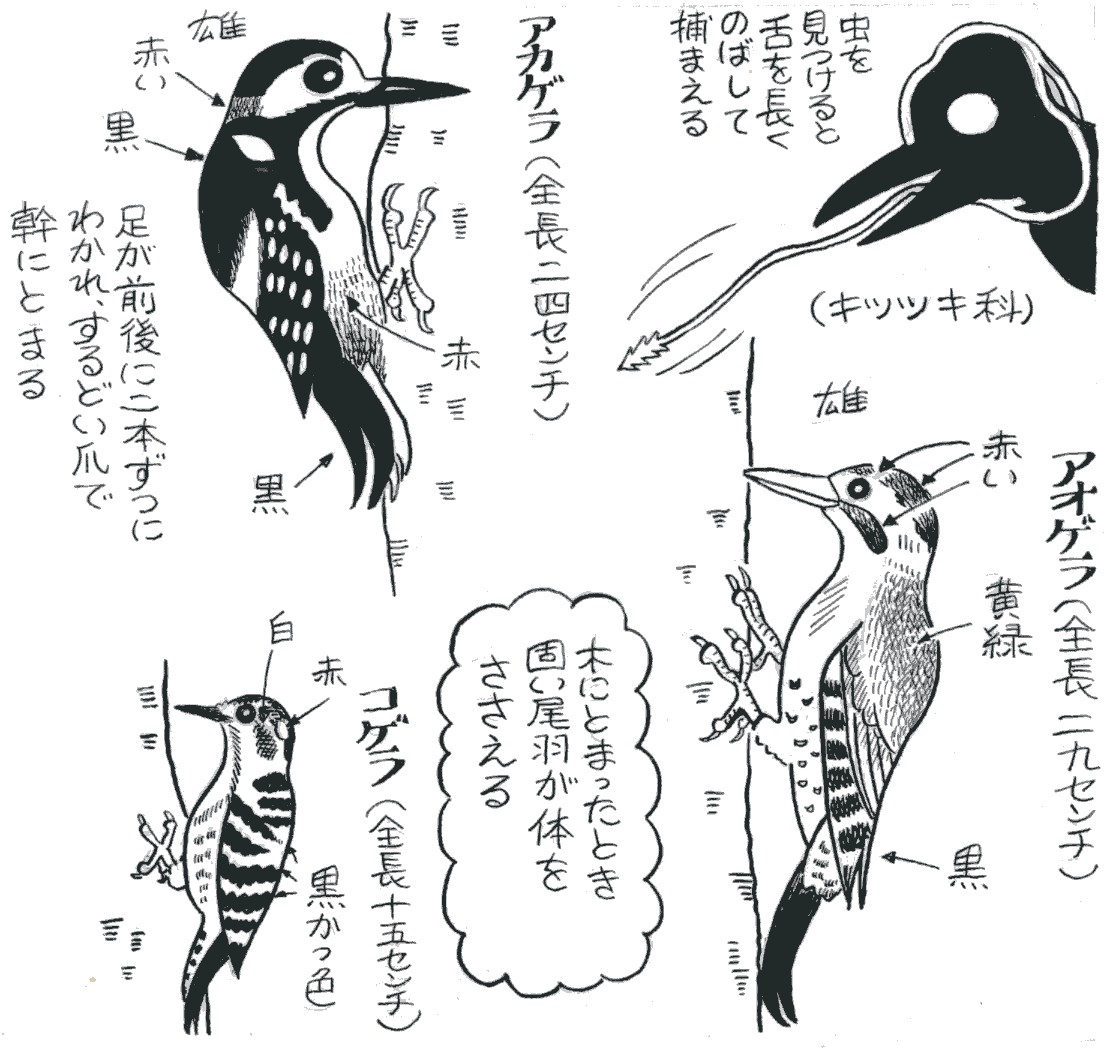 虫を
見つけると
舌を長く
のばして
捕まえる
(キツツキ科)
アカゲラ(全長二四センチ)
雄
赤い
黒
赤
黒
足が前後に二本ずつに
わかれ、するどい爪で
幹にとまる
アオゲラ(全長二九センチ)
雄
赤い
黄緑
黒
木にとまったとき
固い尾羽が体を
ささえる
コゲラ(全長十五センチ)
白
赤
黒かっ色